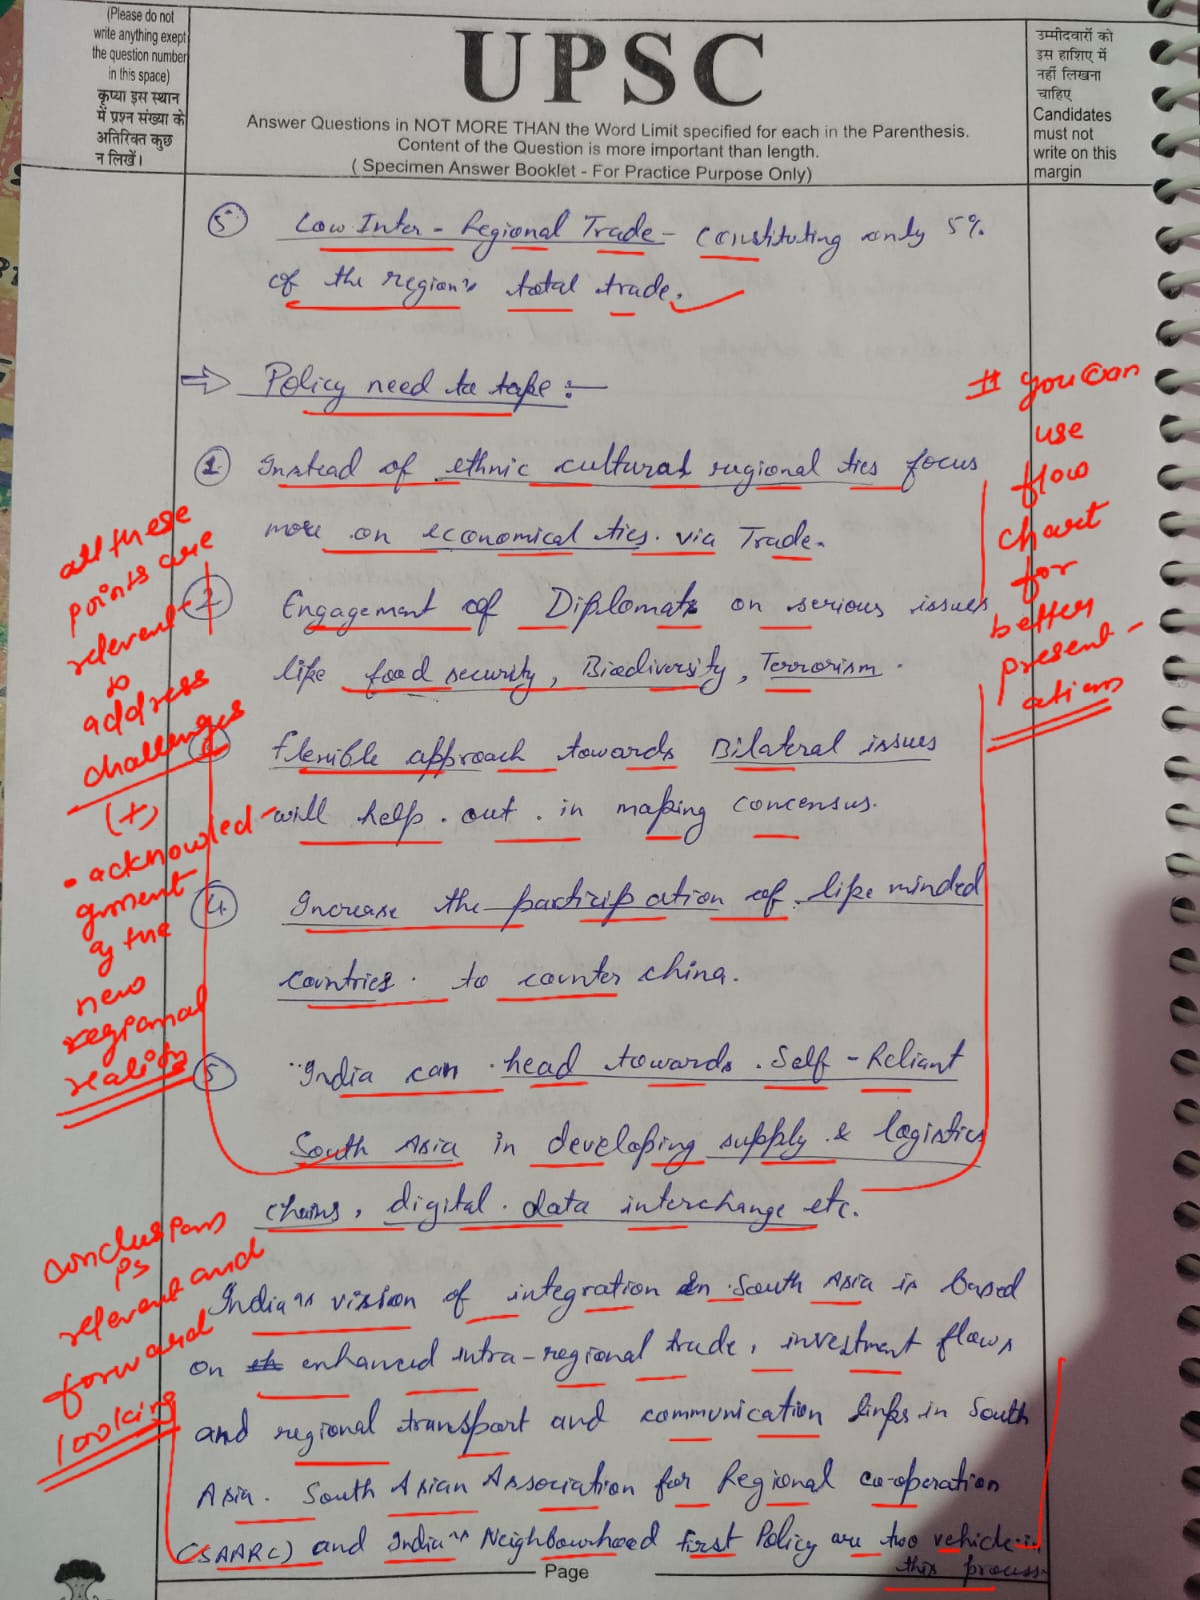 (Please do not
write anything exept
the question number
in this space)
कृप्या इस स्थान
में प्रश्न संख्या के
अतिरिक्त कुछ
न लिखें।
UPSC
Answer Questions in NOT MORE THAN the Word Limit specified for each in the Parenthesis.
Content of the Question is more important than length.
( Specimen Answer Booklet - For Practice Purpose Only)
उम्मीदवारों को
इस हाशिए में
नहीं लिखना
चाहिए
Candidates
must not
write on this
margin
5 Low Inter - Regional Trade - Constituting only 5%
of the region's total trade.
⇒ Policy need to take :-
1. Instead of ethnic cultural regional ties focus
more on economical ties. via Trade.
2 Engagement of Diplomats on serious issues
like food security, Biodiversity, Terrorism.
flexible approach towards Bilateral issues
will help. out. in making concensus.
4. Increase the participation of. like minded
countries. to counter china.
5 "India can. head towards. Self - Reliant
South Asia in developing supply & logistics
chains, digital. data interchange etc.
India's vision of integration in South Asia is based
on enhanced intra-regional trade, investment flows
and regional transport and communication links in South
Asia. South Asian Association for Regional co-operation
(SAARC) and India's Neighbourhood first Policy are two vehicle in
this process.
all these
points are
relevent
to
address
challenges
(+)
• acknowled-
gment
of the
new
regional
reality
# you can
use
flow
chart
for
better
present-
ations
conclusions
is
relevent and
forward
looking
Page